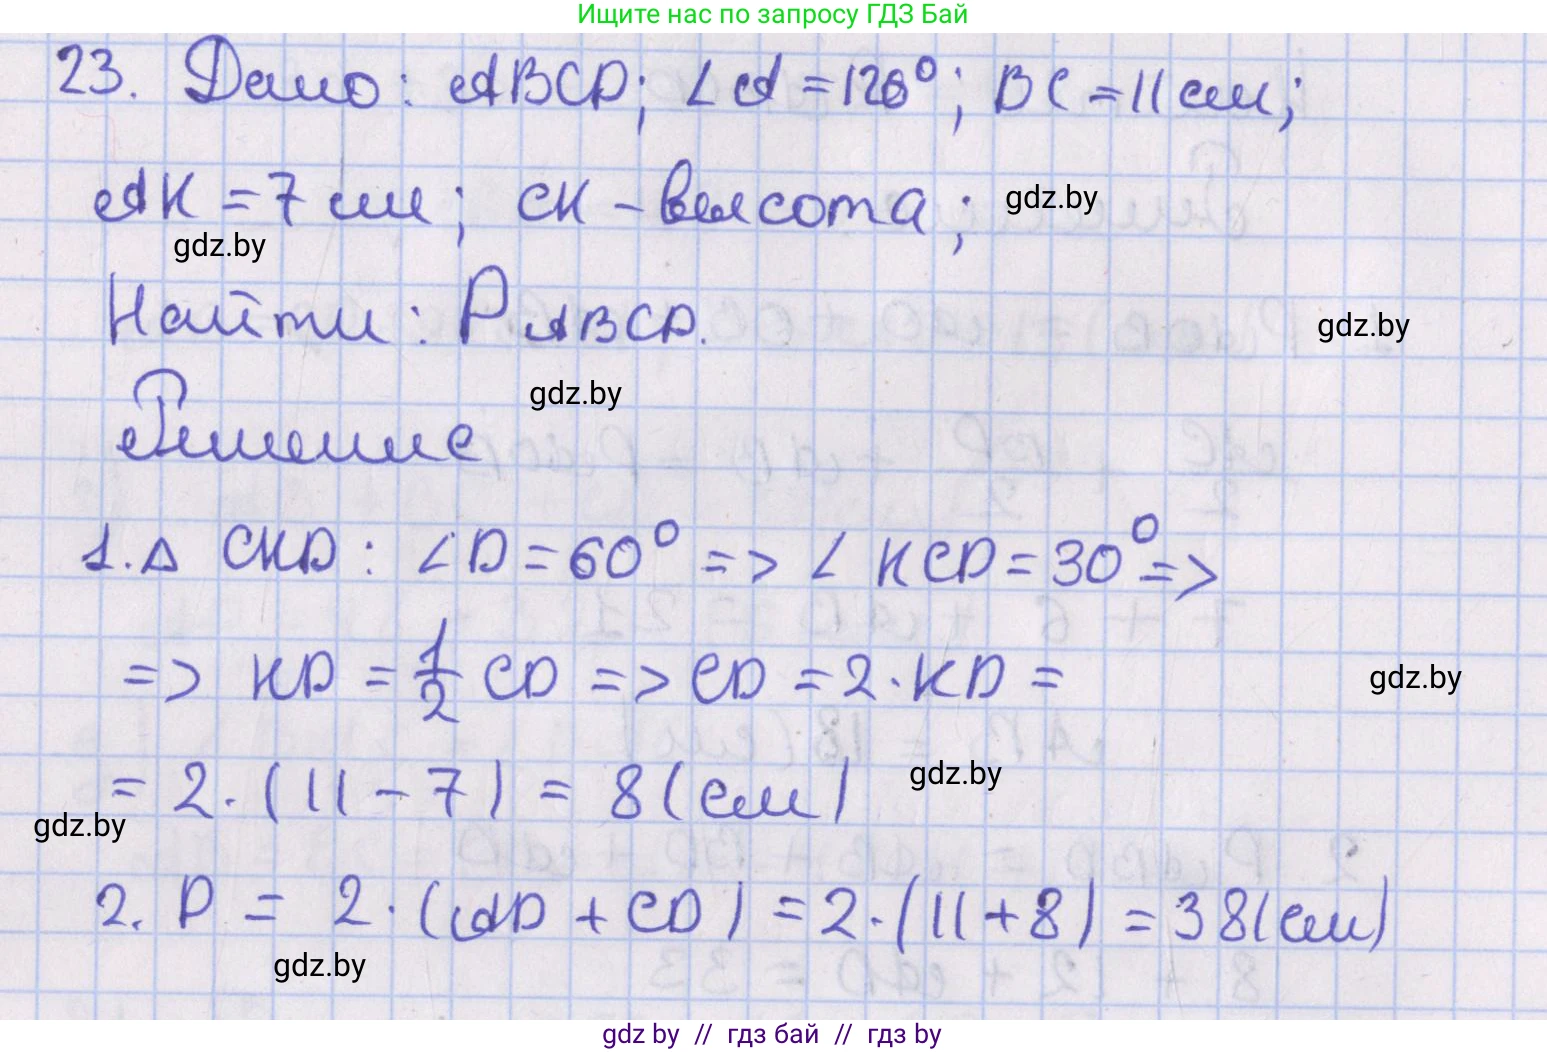 Ищите нас по запросу ГДЗ Бай
23. Дано: ABCD; ∠A = 120°; BC = 11 см;
AK = 7 см; CK – высота;
gdz.by
gdz.by
Найти: P ABCD.
gdz.by
gdz.by
Решение
1. △ CKD: ∠D = 60° => ∠KCD = 30° =>
=> KD = 1/2 CD => CD = 2 · KD =
gdz.by
= 2 · (11 – 7) = 8 (см)
gdz.by
gdz.by
2. P = 2 · (AD + CD) = 2 · (11 + 8) = 38 (см)
gdz.by
gdz.by // гдз бай // гдз by